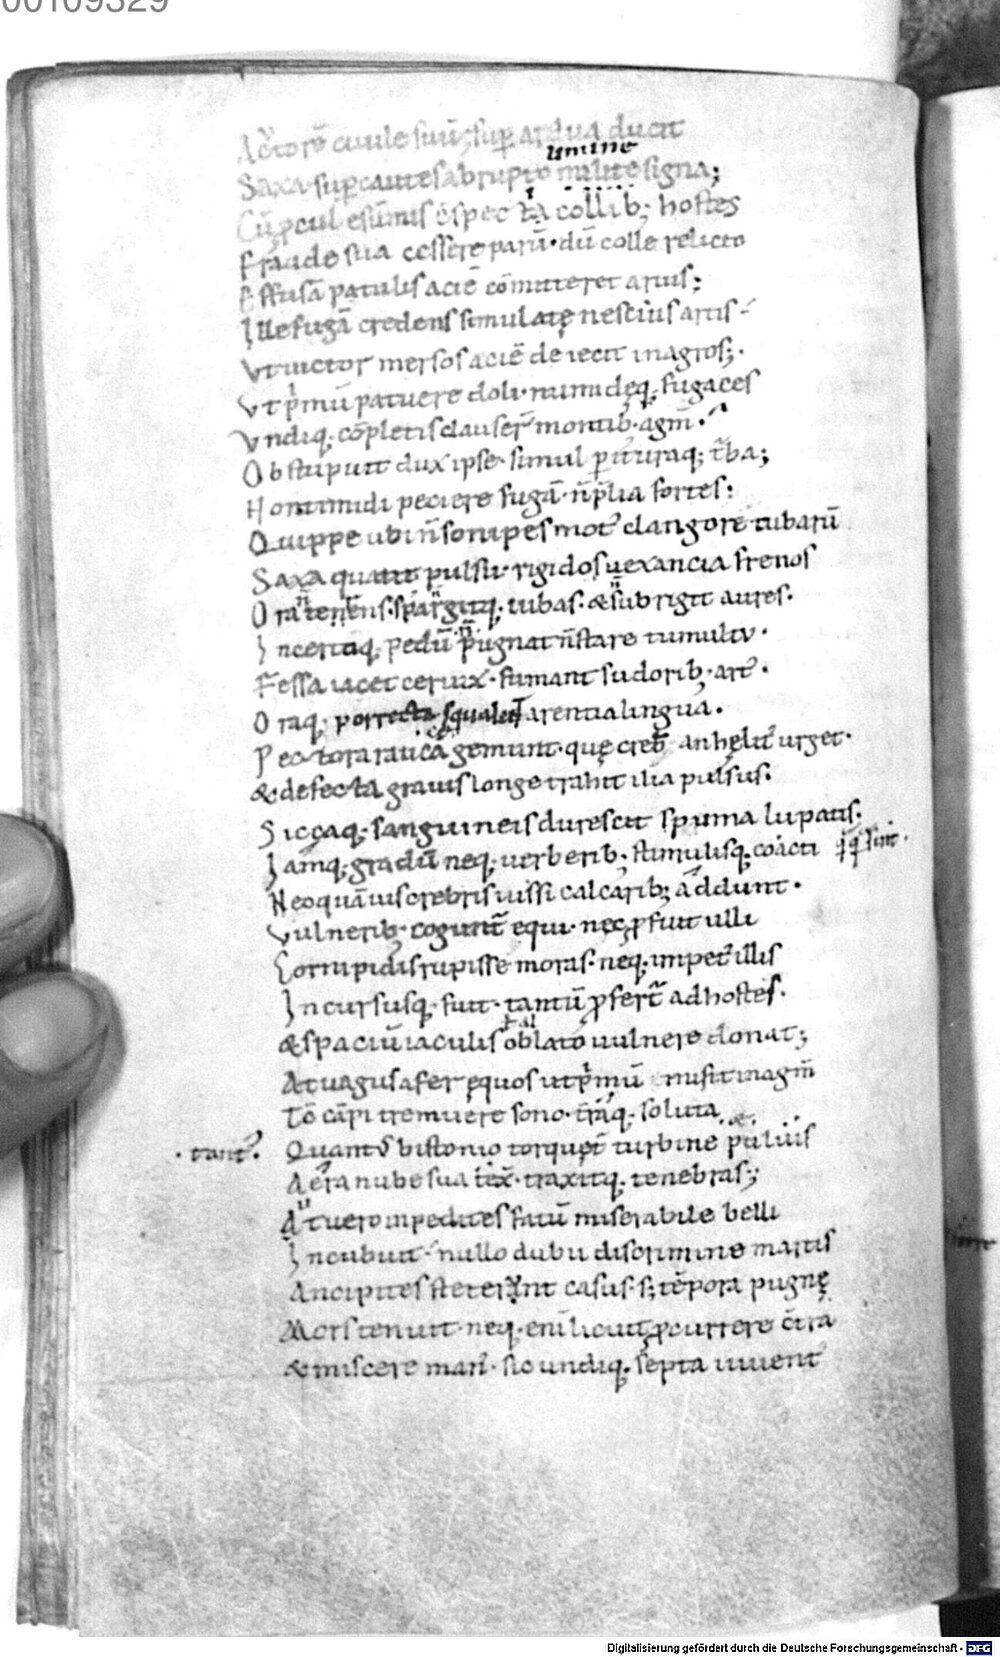 00109329
Actorē ciuile suū; sup ardua ducit
limine
Saxa sup cautes abrupto milite signa;
Cū pcul e sūmis cspecta collib; hostes
Fraude sua cessere parū dū colle relicto
Effusā patulis aciē cōmitteret aruis;
Ille fugā credens simulatę nescius artis
Vt uictor mersos aciē deiecit in agros;
Vt pmū patuere doli numideq; fugaces
Vndiq; cōpletis clauser montib; agm̄
Obstupuit dux ipse simul pituraq; tba;
Non timidi peciere fugā n̄ plia fortes;
Quippe ubi n̄ sonipes mot clangore tubarū
Saxa quatit pulsu rigidos uexancia frenos
Ora terens spargitq; iubas & subrigit aures.
Incertoq; pedū pugnat n̄ stare tumultu.
Fessa iacet ceruix fumant sudorib; art.
Oraq; porrecta squalent arentia lingua.
Pectora rauca gemunt quę creb anhelit urget.
& defecta grauis longe trahit ilia pulsus.
Siccaq; sanguineis durescit spuma lupatis.
Iamq; gradū neq; uerberib; stimulisq; coacti
Neo quāuis crebris iussi calcarib; addunt.
Vulnerib; cogunt equi nec pfuit ulli
Cornipidis rupisse moras neq; impet illis
Incursusq; fuit tantū pfert ad hostes.
ł al
& spaciū iaculis oblato uulnere donat;
At uagus afer equos ut pmū misit in agm̄
Tō cāpi tremuere sono traq; soluta
tant
Quantꝰ bistonio torquet turbine puluis
Aera nube sua tex traxitq; tenebras;
At uero in pedites fatū miserabile belli
Incubuit nullo dubii discrimine martis
Ancipites steterunt casus s; tēpora pugnę
Mors tenuit neq; enī licuit pcurrere ctra
& miscere man sic undiq; septa iuuent
Digitalisierung gefördert durch die Deutsche Forschungsgemeinschaft - DFG